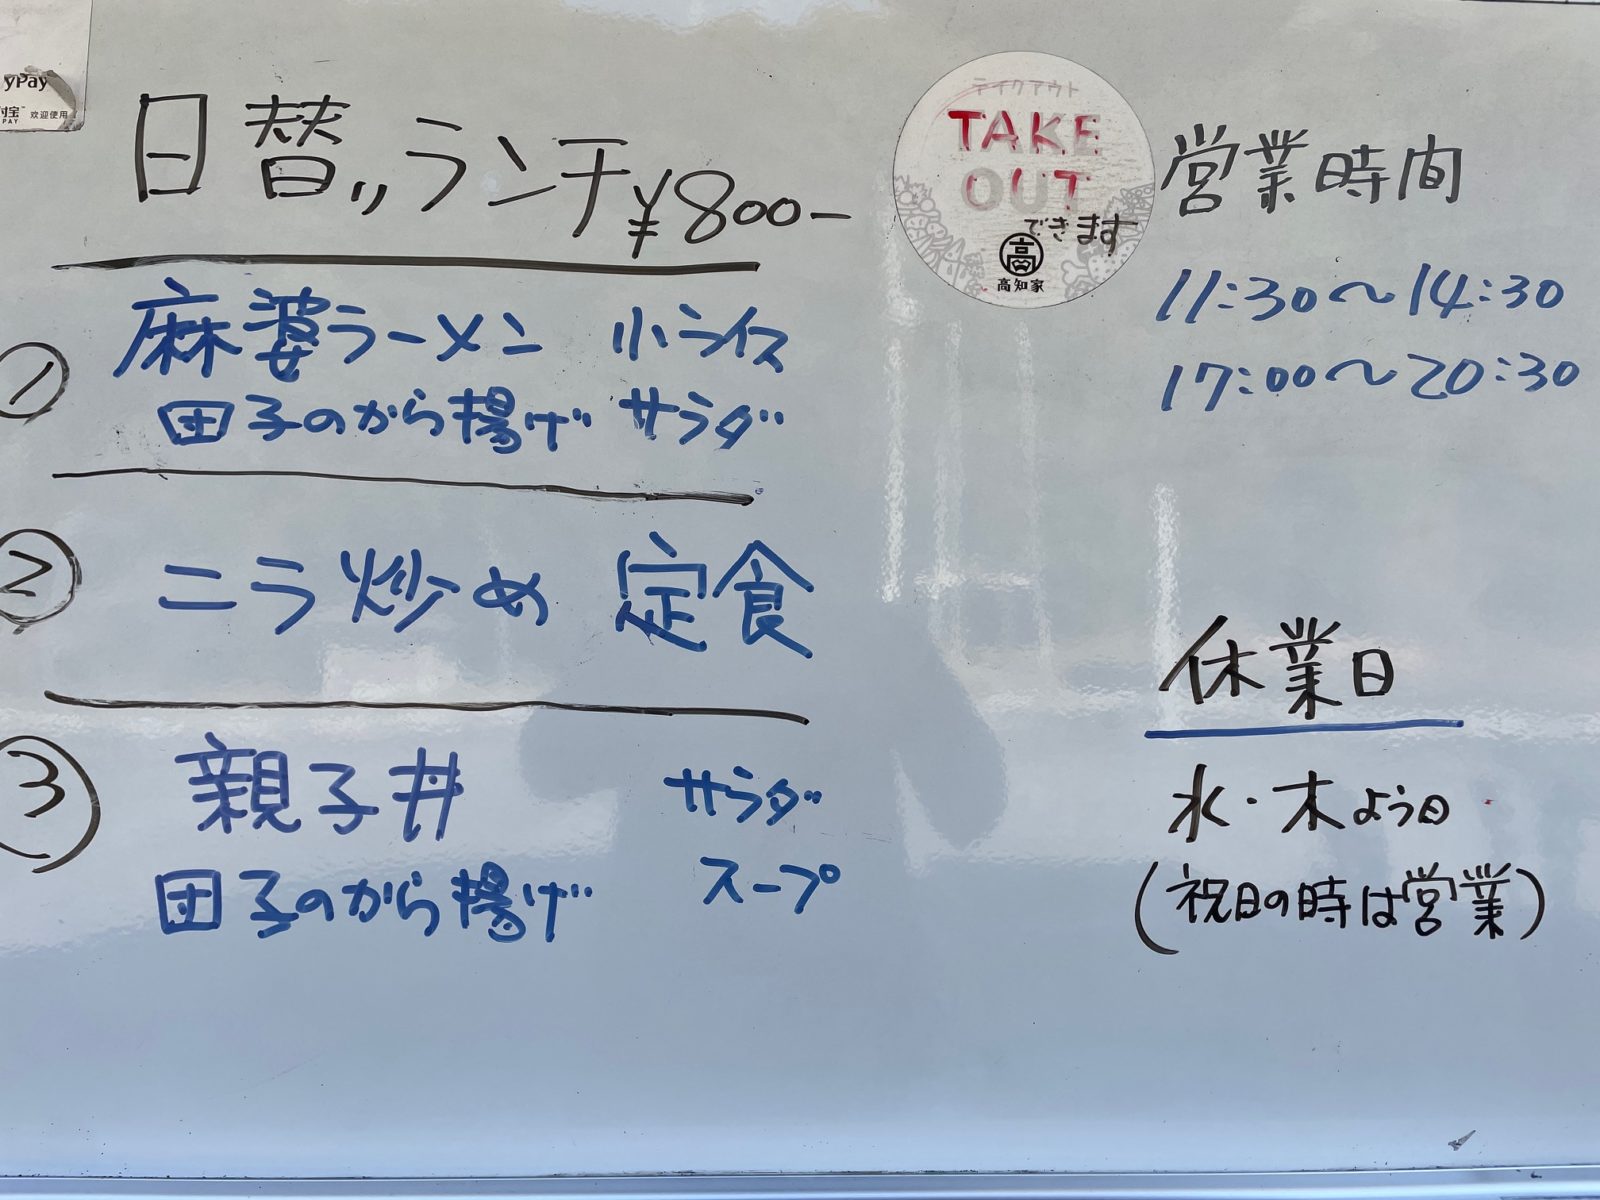 yPay
付宝
PAY
欢迎使用
日替〃ランチ ¥800-
① 麻婆ラーメン 小ライス
団子のから揚げ サラダ
② ニラ炒め 定食
③ 親子丼 サラダ
団子のから揚げ スープ
テイクアウト
TAKE
OUT
できます
高
高知家
営業時間
11:30〜14:30
17:00〜20:30
休業日
水・木よう日
(祝日の時は営業)